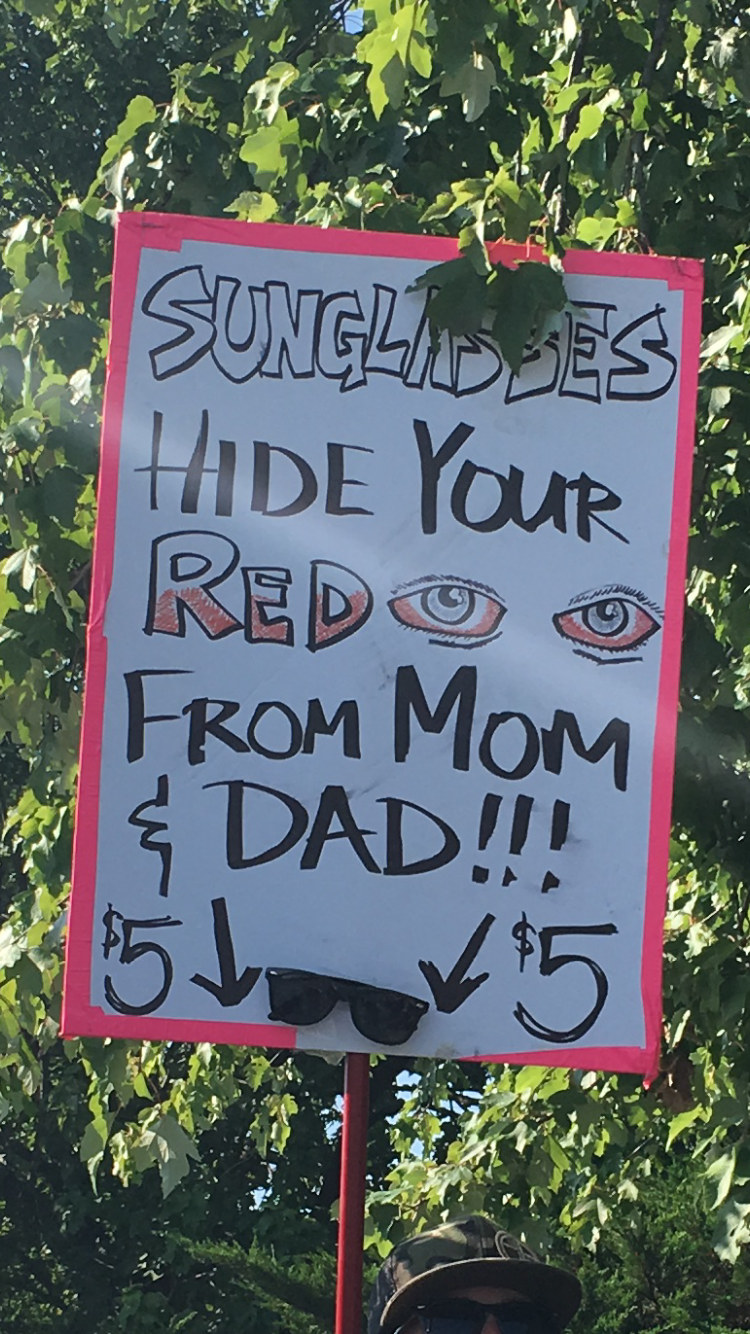 SUNGLASSES
HIDE YOUR
RED
FROM MOM
& DAD!!!
$5 $5